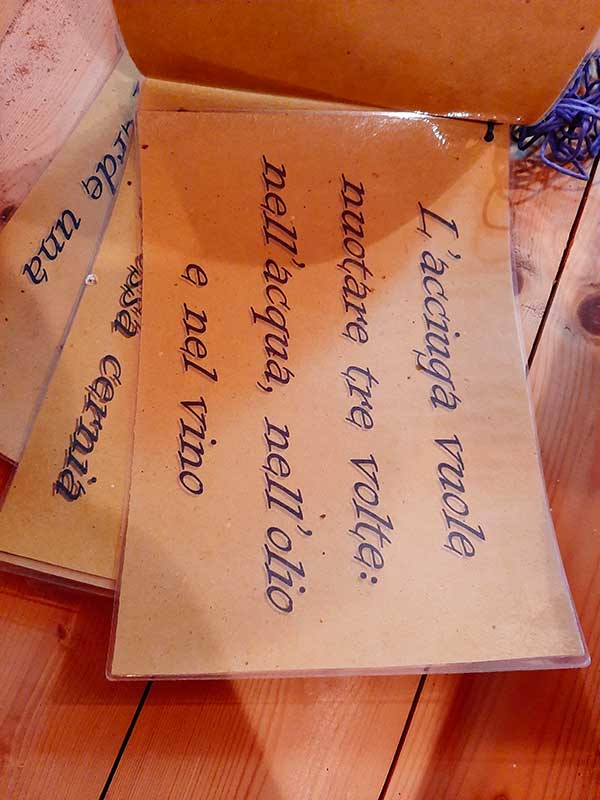 L'acciuga vuole
nuotare tre volte:
nell'acqua, nell'olio
e nel vino
cernia
una